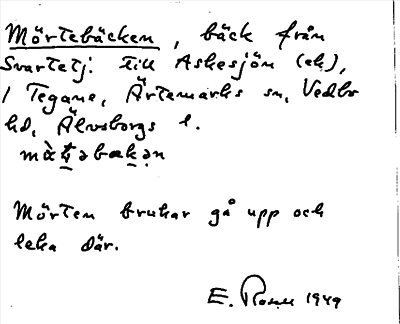 Mörtebäcken, bäck från
Svartetj. till Askesjön (ek),
i Tegane, Ärtemarks sn, Vedbo
hd, Älvsborgs l.
Mörten brukar gå upp och
leka där.
E. 1949